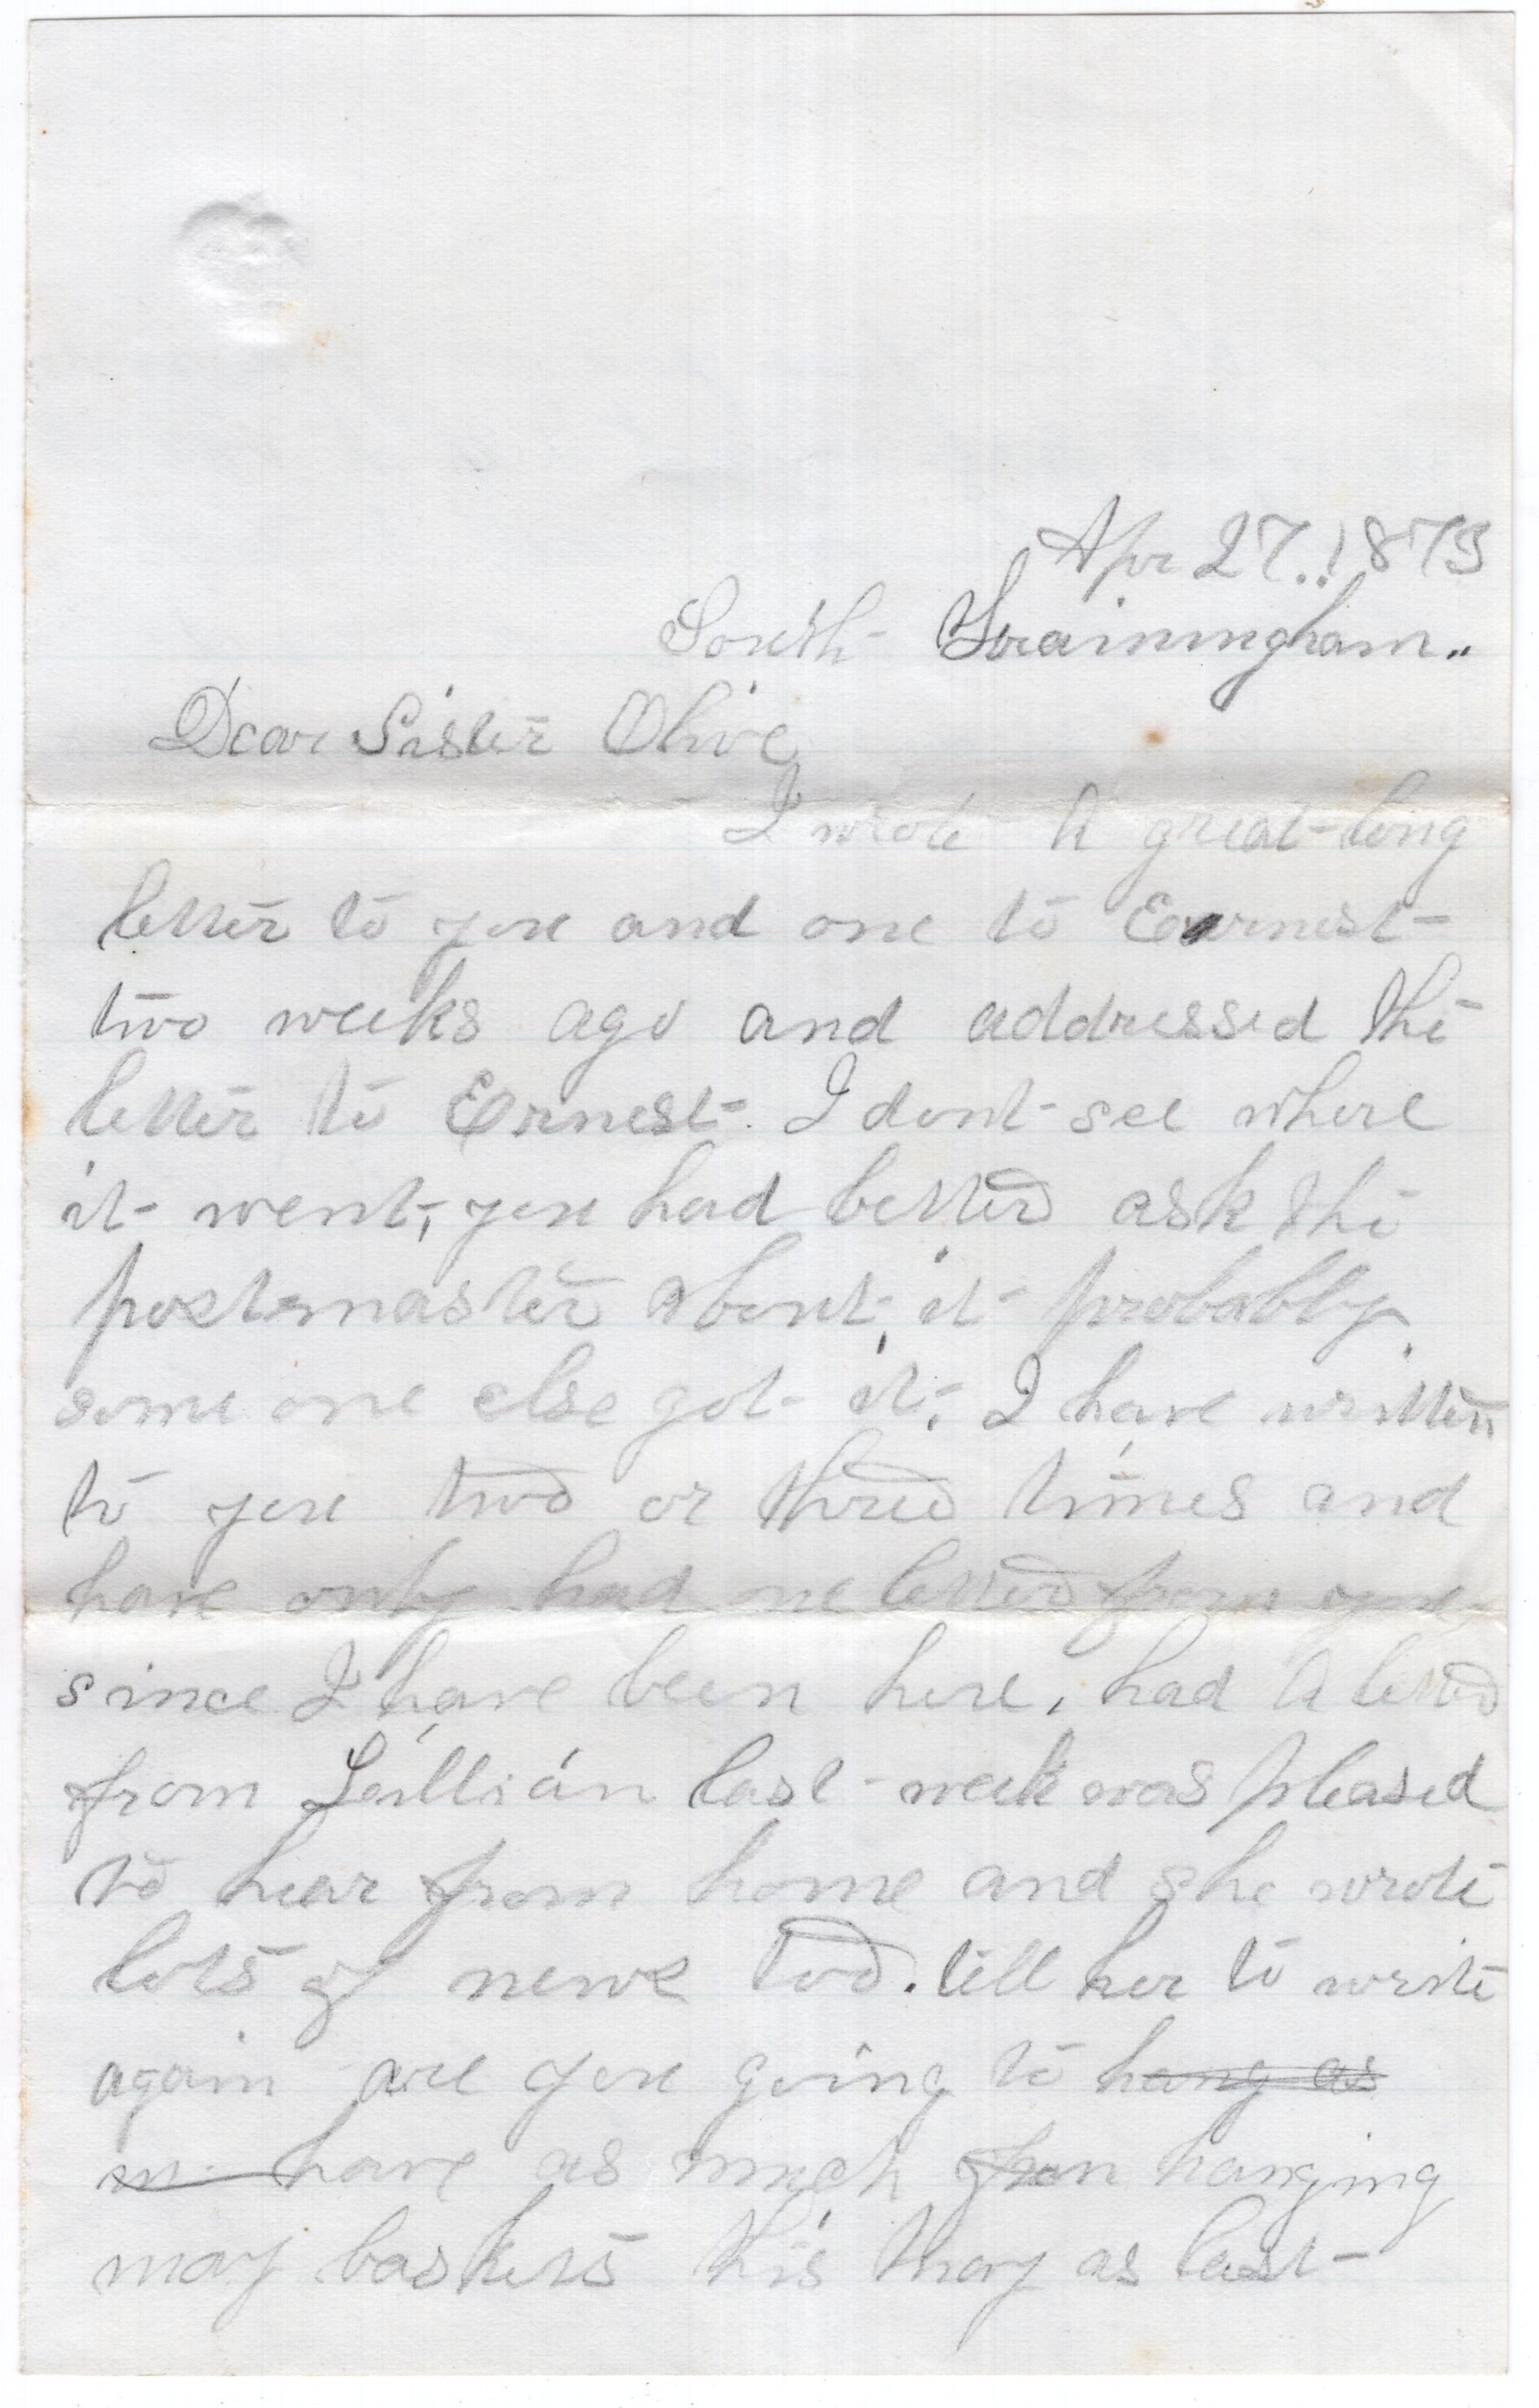 Apr 27..1873
South Framingham..
Dear Sister Olive
I wrote A great long
letter to you and one to Earnest
two weeks ago and addressed the
letter to Ernest. I dont see where
it went, you had better ask the
postmaster about it probably
some one else got it. I have written
to you two or three times and
have only had one letter from you
since I have been here, had A letter
from Lillian last week was pleased
to hear from home and she wrote
lots of news too. tell her to write
again are you going to hang as
m have as much fun hanging
may baskets this May as last